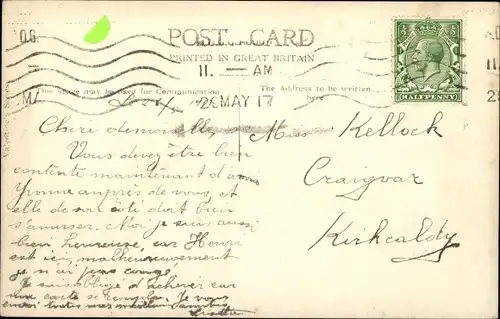 POST CARD
PRINTED IN GREAT BRITAIN
11. — AM
MAY 17
This space may be used for Communication
The Address to be written
here
HALFPENNY
Chère demoiselle
Vous devez être bien
contente maintenant d'avoir
Yvonne auprès de vous, et
elle de son côté doit bien
s'amuser. Moi je suis aussi
bien heureuse, car Henri
est ici, malheureusement
je n'ai pas congé.
Je suis obligé d'achever car
ma carte se remplie. Je vous
envoi toutes mes
Miss Kellock
Craigvar
Kirkcaldy